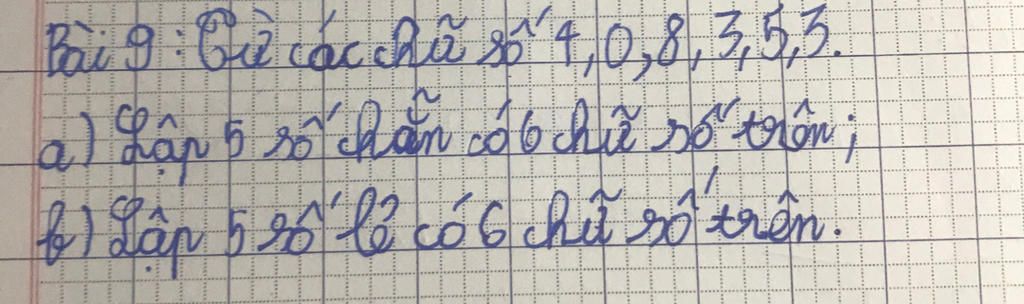 Bài 9: Từ các chữ số 4, 0, 8, 3, 5, 3.
a) Lập 5 số chẵn có 6 chữ số trên;
b) Lập 5 số lẻ có 6 chữ số trên.